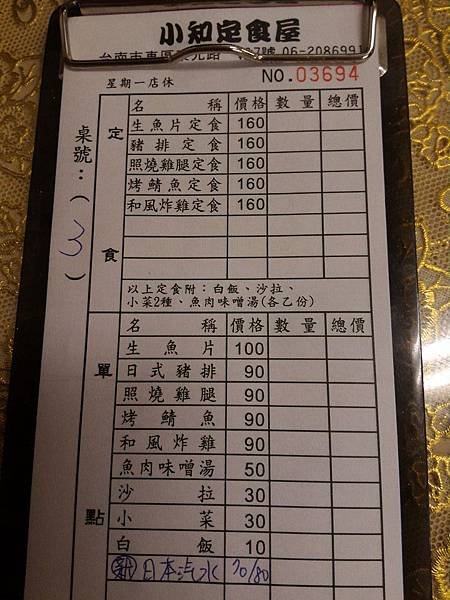 小知定食屋
台南市東區 號 06-2086991
星期一店休 NO.03694
桌號：( 3 )
定食
名稱 價格 數量 總價
生魚片定食 160
豬排定食 160
照燒雞腿定食 160
烤鯖魚定食 160
和風炸雞定食 160
以上定食附：白飯、沙拉、
小菜2種、魚肉味噌湯(各乙份)
單點
名稱 價格 數量 總價
生魚片 100
日式豬排 90
照燒雞腿 90
烤鯖魚 90
和風炸雞 90
魚肉味噌湯 50
沙拉 30
小菜 30
白飯 10
新 日本汽水 70/80